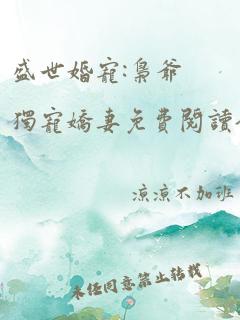 盛世婚寵:梟爺
獨寵嬌妻免費閱讀
涼涼不加班
未经同意禁止转载